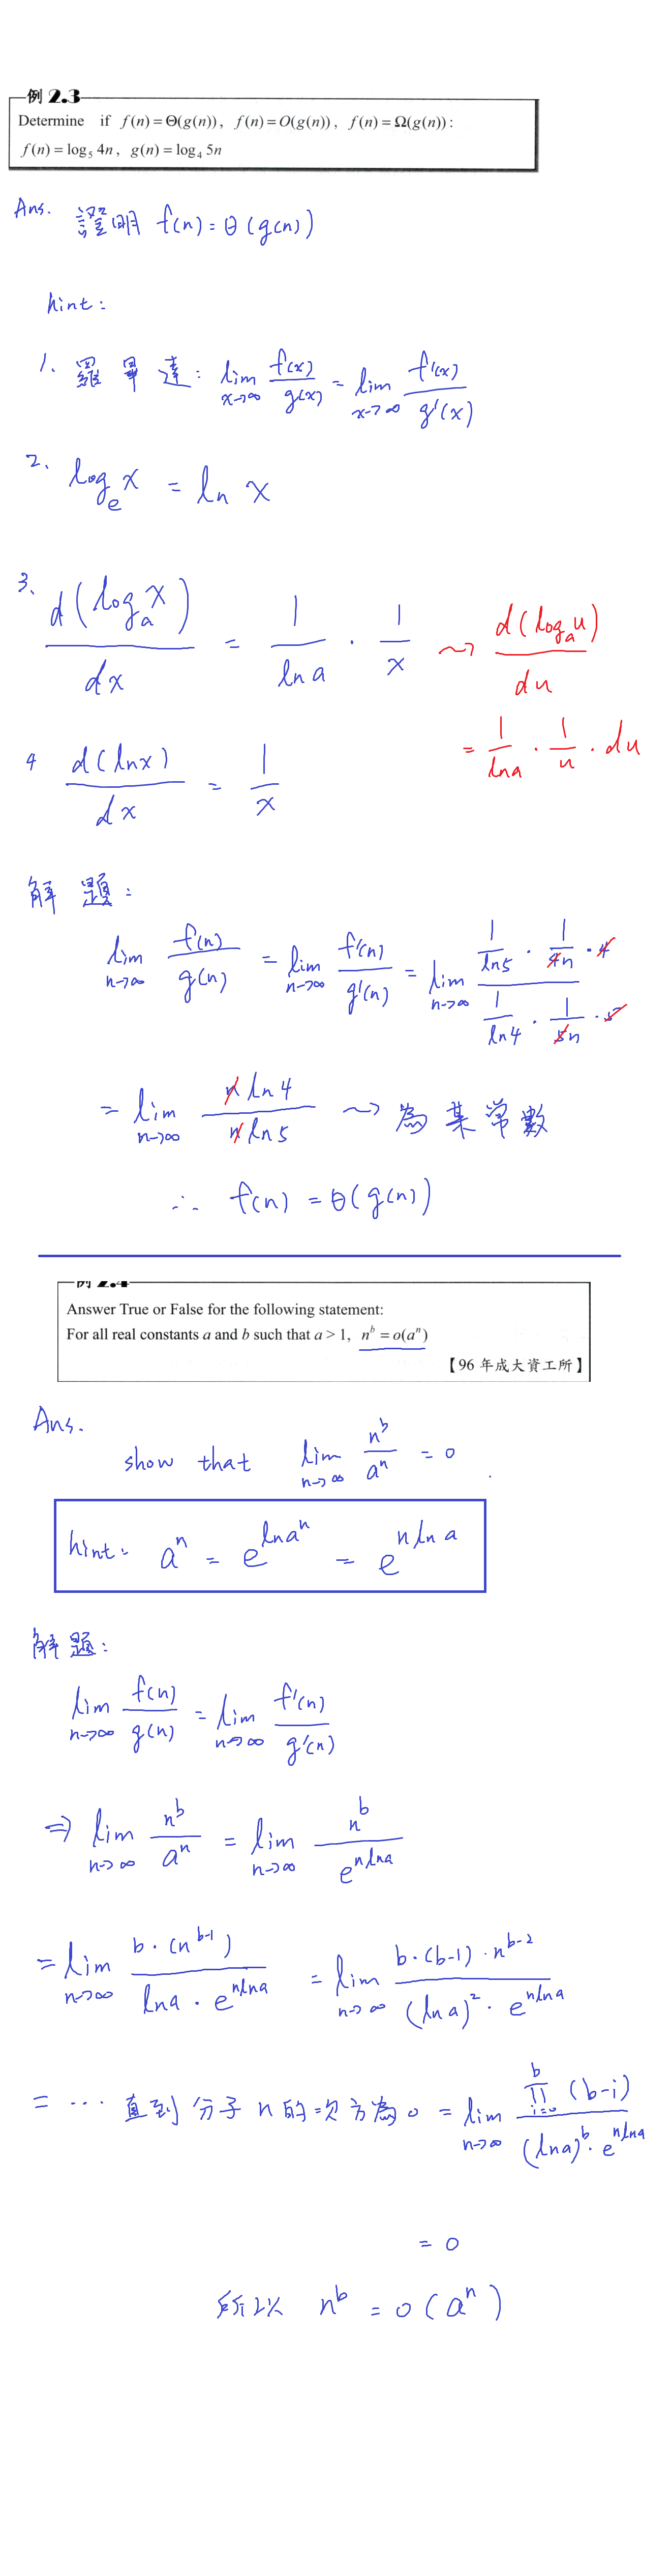 例 2.3
Determine if f(n) = Θ(g(n)), f(n) = O(g(n)), f(n) = Ω(g(n)) :
f(n) = log₅ 4n, g(n) = log₄ 5n
Ans. 證明 f(n) = θ(g(n))
hint :
1. 羅畢達 : lim x→∞ f(x)/g(x) = lim x→∞ f'(x)/g'(x)
2. log_e x = ln x
3. d(log_a x)/dx = 1/ln a · 1/x ⇝ d(log_a u)/du
= 1/lna · 1/u · du
4 d(lnx)/dx = 1/x
解題 :
lim n→∞ f(n)/g(n) = lim n→∞ f'(n)/g'(n) = lim n→∞ (1/ln5 · 1/4n · 4)/(1/ln4 · 1/5n · 5)
= lim n→∞ n ln4 / n ln5 ⇝ 為某常數
∴ f(n) = θ(g(n))
例 2.4
Answer True or False for the following statement:
For all real constants a and b such that a > 1, n^b = o(a^n)
【96 年成大資工所】
Ans.
show that lim n→∞ n^b/a^n = 0 .
hint : a^n = e^{lna^n} = e^{n ln a}
解題 :
lim n→∞ f(n)/g(n) = lim n→∞ f'(n)/g'(n)
⇒ lim n→∞ n^b/a^n = lim n→∞ n^b/e^{nlna}
= lim n→∞ b·(n^{b-1})/(lna · e^{nlna}) = lim n→∞ b·(b-1)·n^{b-2}/((lna)²· e^{nlna})
= ... 直到分子 n 的次方為 0 = lim n→∞ ∏_{i=0}^{b} (b-i)/((lna)^b · e^{nlna})
= 0
所以 n^b = o(a^n)